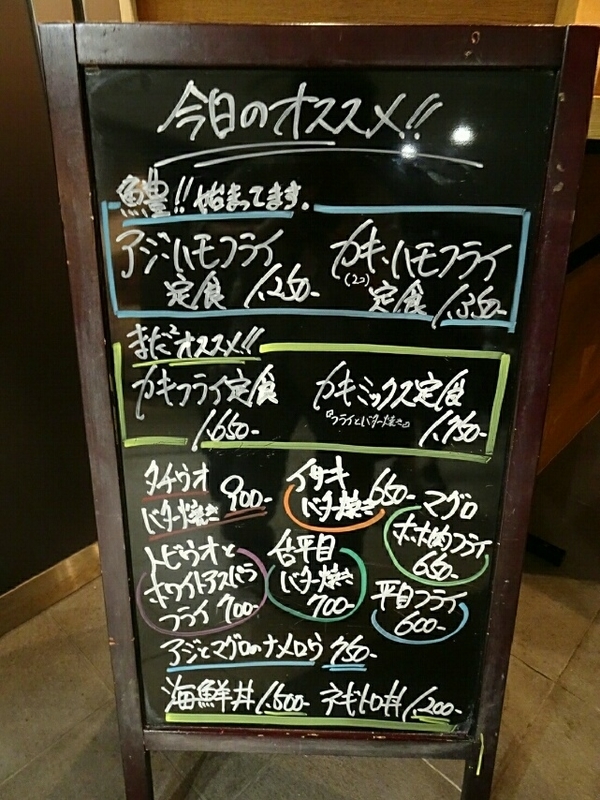 今日のオススメ!!
鱧!! 始まってます。
アジ・ハモフライ
定食 1,250-
カキ、ハモフライ
(2コ) 定食 1,350-
まだまだオススメ!!
カキフライ定食
1,650-
カキミックス定食
『フライとバター焼き』
1,750-
タチウオ
バター焼き 900-
イサキ
バター焼き 650-
マグロ
ホホ肉フライ
650-
トビウオと
ホワイトアスパラ
フライ 700-
平目
バター焼き
700-
平目フライ
600-
アジとマグロのナメロウ 750-
海鮮丼 1,500- ネギトロ丼 1,200-